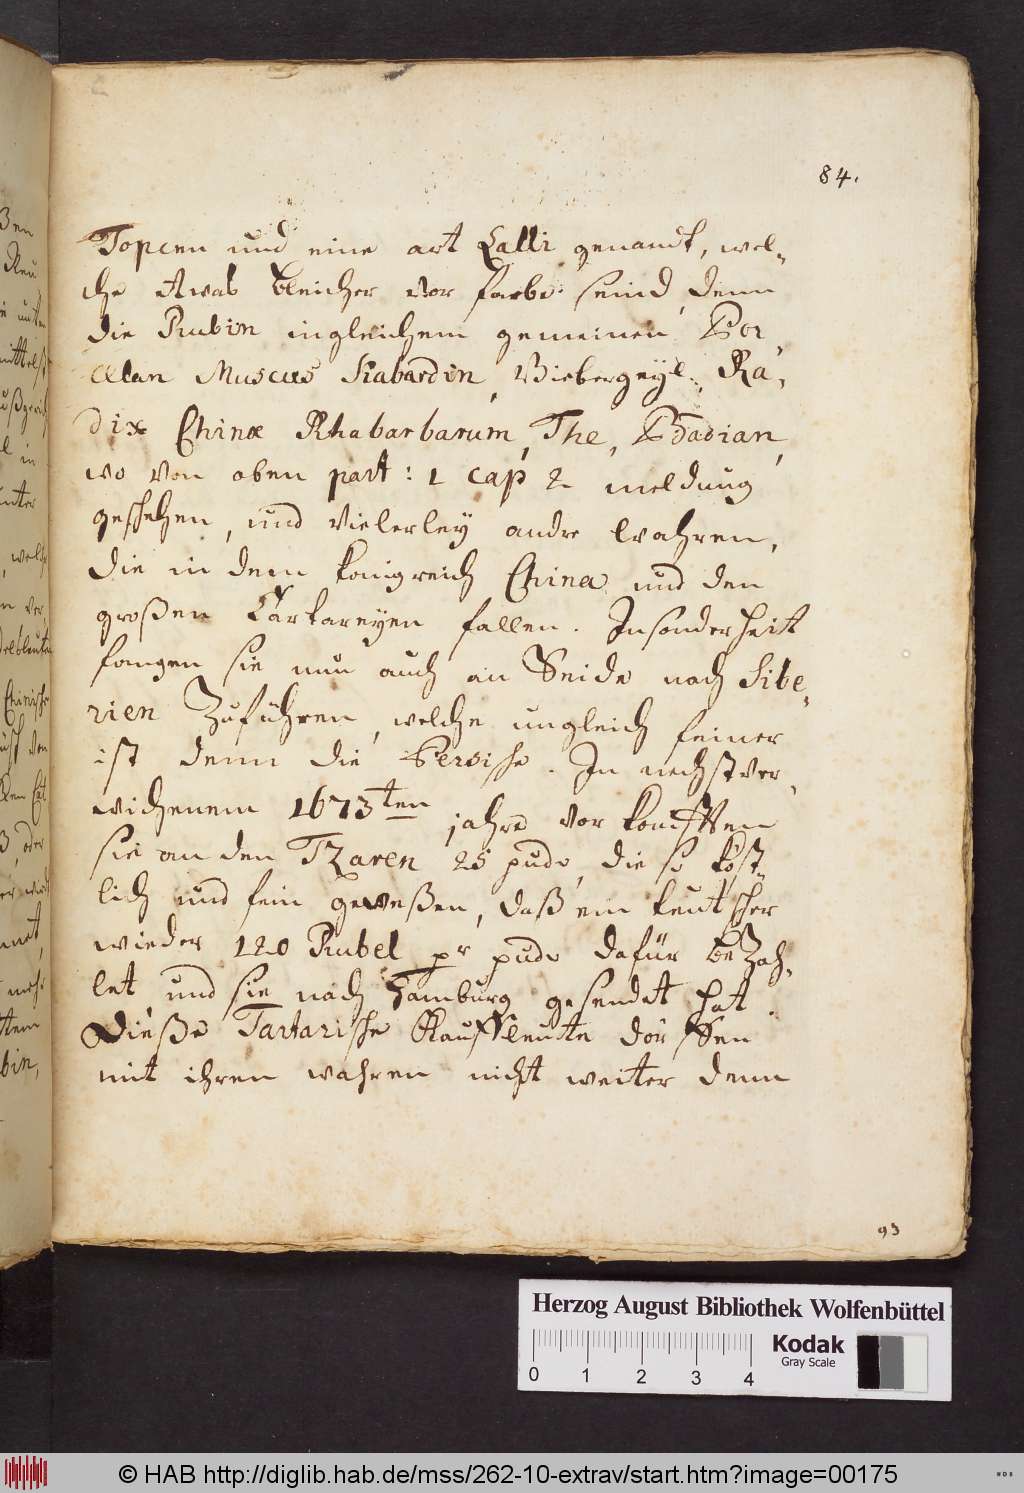 84.
Topcen und eine art Lalli genandt, wel-
che etwas bleicher vor farbe seind denn
die Rubin ingleichem gemeinen Por-
cellan Muscus Kabardin, Biebergeyl, Ra-
dix Chinæ Rhabarbarum, The, Badian,
wo von oben part: 1 cap 2 meldung
geschehen, und vielerley andre wahren,
die in dem königreich China und den
großen Tartareyen fallen. Insonderheit
fangen sie nun auch an Seide nach Sibe-
rien Zuführen, welche ungleich feiner
ist denn die Persische. In nechstver-
wichenem 1673ten jahre verkaufften
sie an den Tzaren 25 pude, die so köst-
lich und fein geweßen, daß ein teutscher
wieder 120 Rubel pr pude dafür beZah-
let und sie nach Hamburg gesendet hat.
Dieße Tartarische Kauffleute dörffen
mit ihren wahren nicht weiter denn
93
Herzog August Bibliothek Wolfenbüttel
Kodak
Gray Scale
0 1 2 3 4
© HAB http://diglib.hab.de/mss/262-10-extrav/start.htm?image=00175